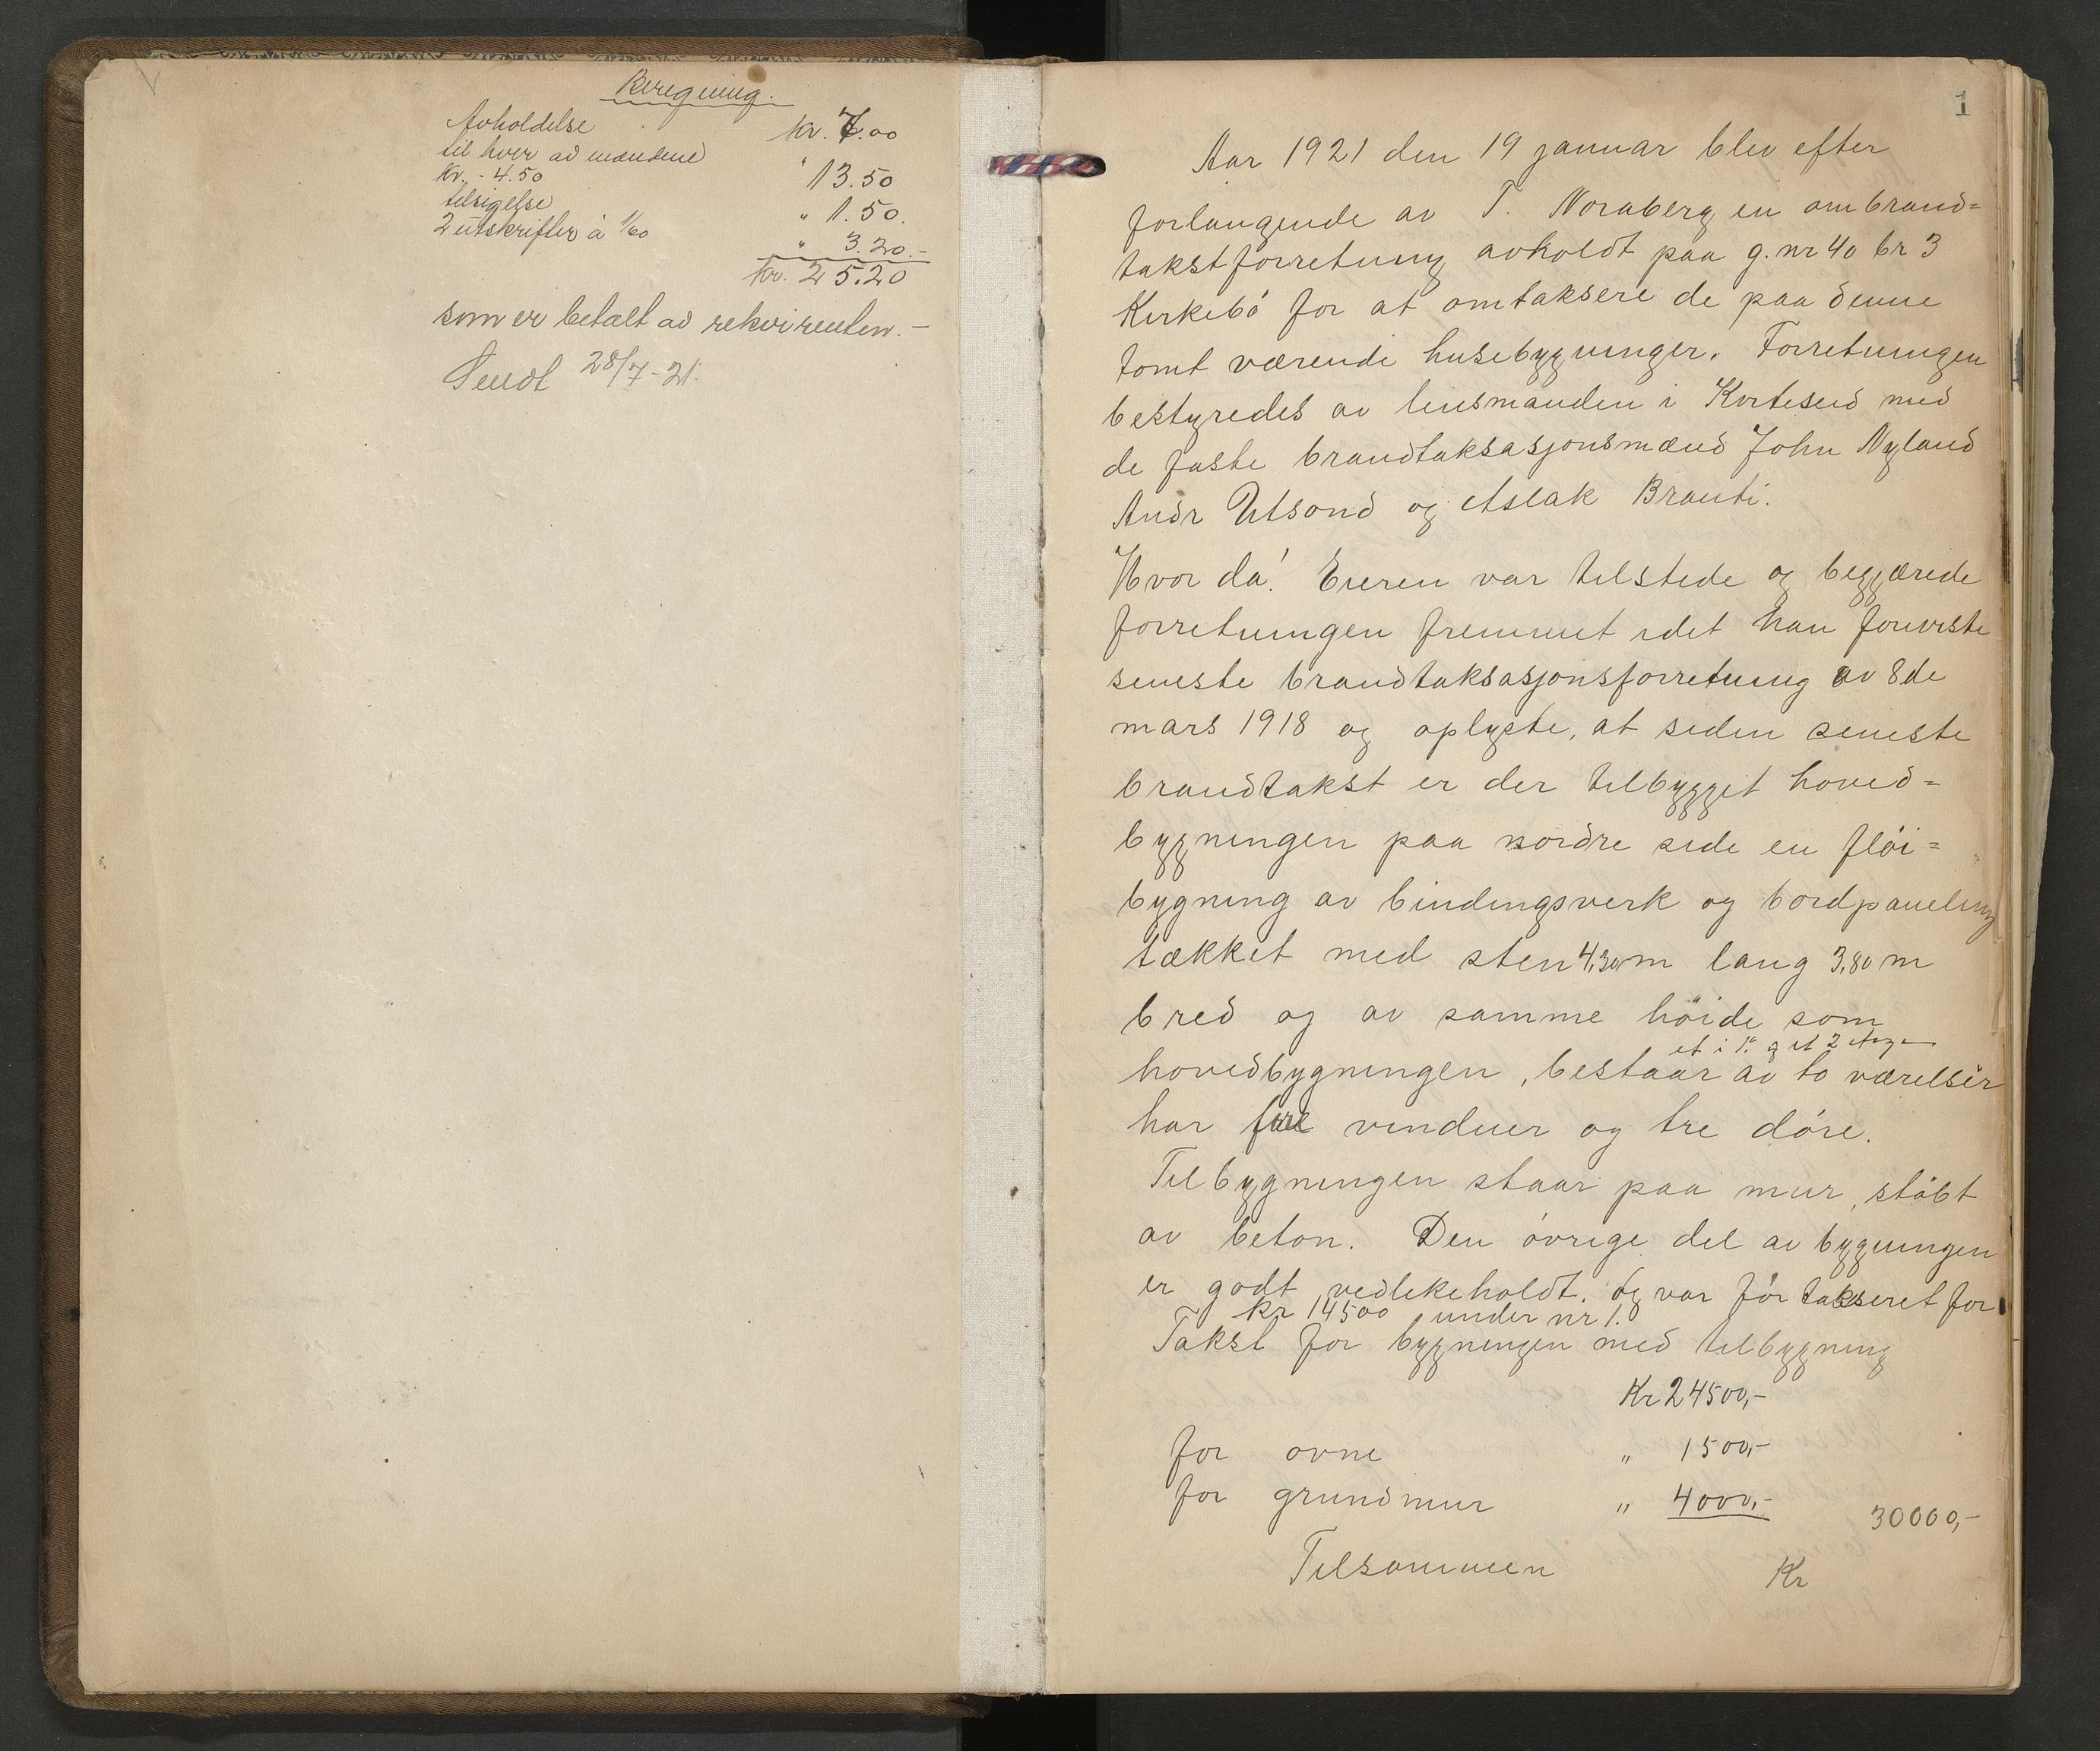 Beregning.
Avholdelse kr. 7.00
til hver av mændene
kr. - 4.50 " 13.50
tilsigelse " 1.50.
2 utskrifter à 1/60 " 3.20.-
kr. 25.20
som er betalt av rekvirenten. -
Sendt 28/7-21.
1
Aar 1921 den 19 januar blev efter
forlangende av T. Noraberg en ombrand=
takstforretning avholdt paa g. nr 40 br 3
Kirkebö for at omtaksere de paa denne
tomt værende husebygninger. Forretningen
bestyredes av lensmanden i Kviteseid med
de faste brandtaksasjonsmænd John Nyland
Andr Utsond og Aslak Brauti.
Hvor da! Eieren var tilstede og begjærede
forretningen fremmet idet han foreviste
seneste brandtaksasjonsforretning av 8de
mars 1918 og oplyste, at siden seneste
brandtakst er der tilbygget hoved=
bygningen paa nordre side en flöi=
bygning av bindingsverk og bordpaneling
tækket med sten 4,30 m lang 3,80 m
bred og av samme höide som
et i 1ste og et 2 etage
hovedbygningen, bestaar av to værelser
har fire vinduer og tre döre.
Tilbygningen staar paa mur, stöbt
av beton. Den övrige del av bygningen
er godt vedlikeholdt. og var för taksseret for
kr 14500 under nr 1.
Takst for bygningen med tilbygning
Kr 24500,-
for ovne " 1500,-
for grundmur " 4000,- 30000,-
Tilsammen Kr